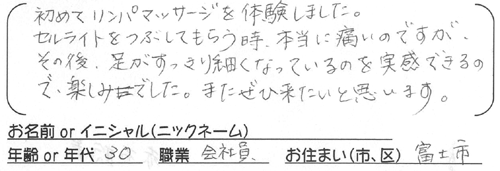 初めてリンパマッサージを体験しました。
セルライトをつぶしてもらう時、本当に痛いのですが、
その後、足がすっきり細くなっているのを実感できるの
で、楽しみでした。またぜひ来たいと思います。
お名前 or イニシャル(ニックネーム)
年齢 or 年代 30 職業 会社員 お住まい(市、区) 富士市